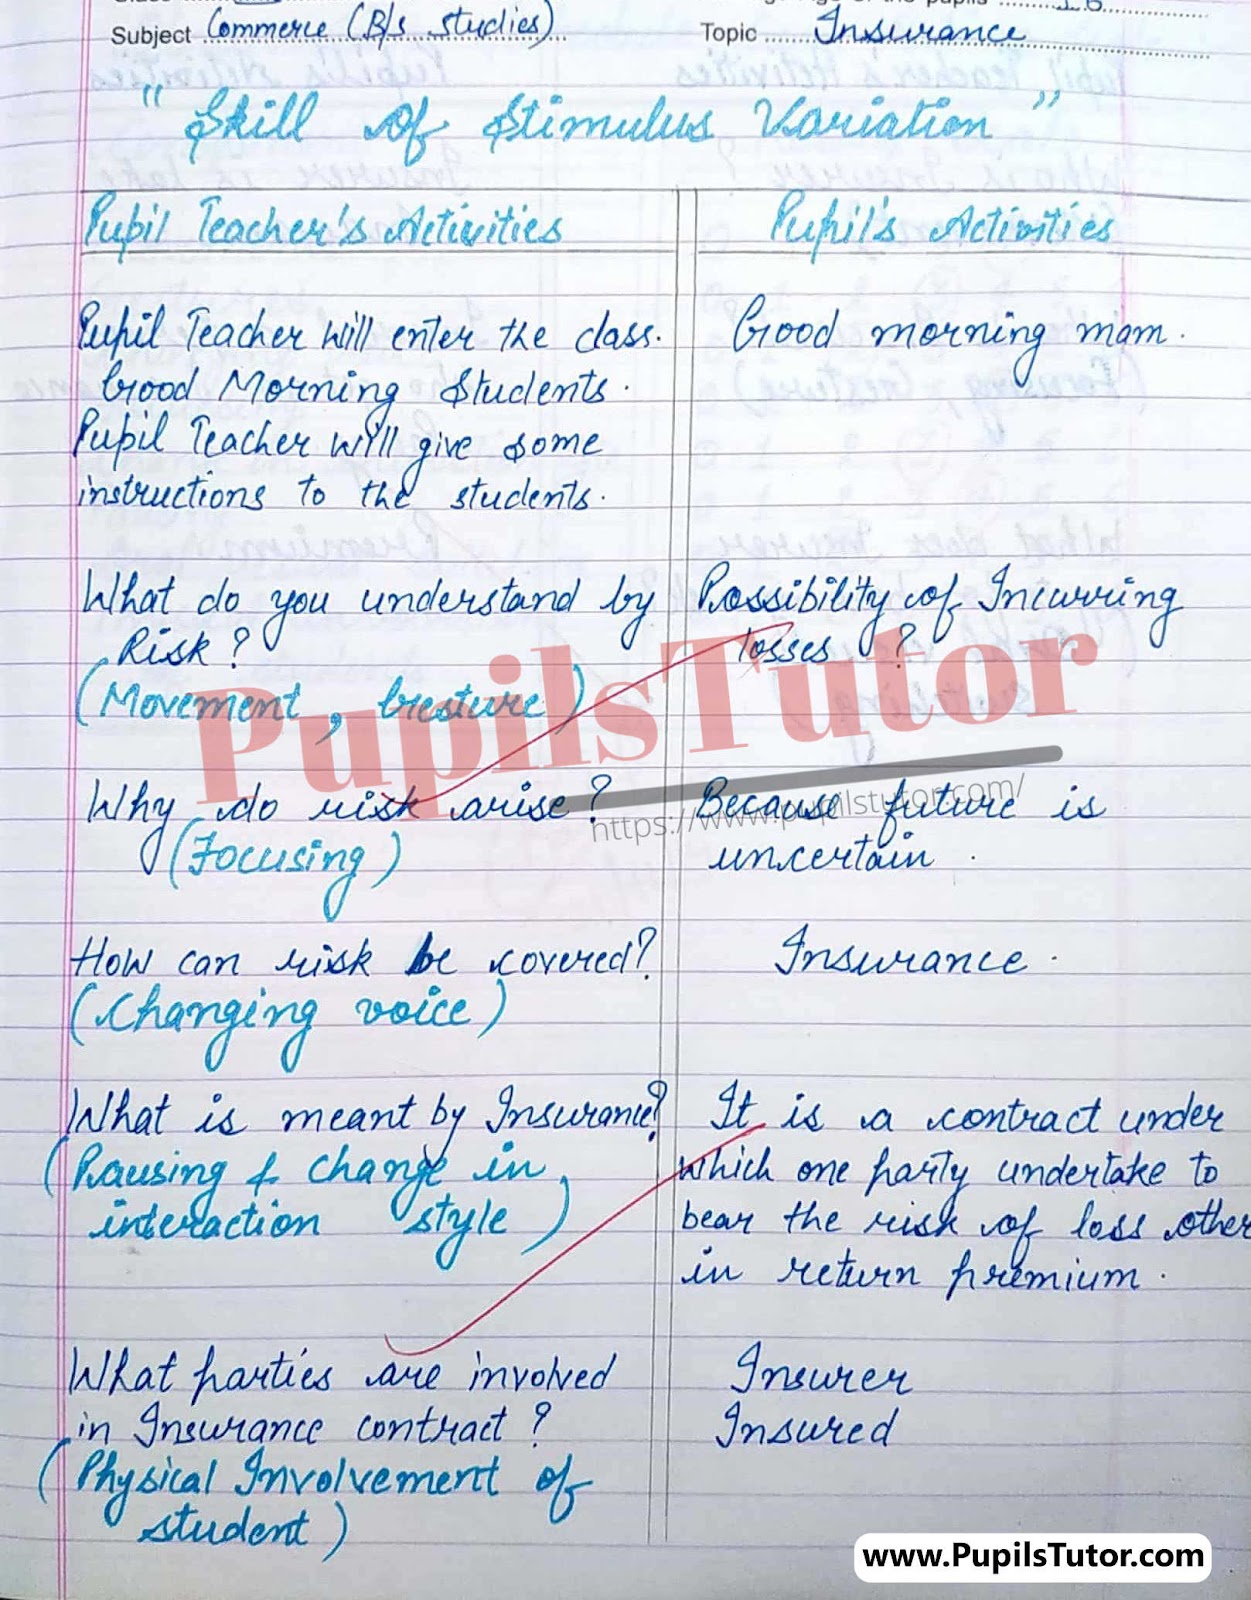 Subject Commerce (B/s studies)
Topic Insurance
" Skill of Stimulus Variation "
Pupil Teacher's Activities
Pupil's Activities
Pupil Teacher will enter the class.
Good Morning Students.
Pupil Teacher will give some
instructions to the students.
Good morning mam.
What do you understand by
Risk?
(Movement, Gresture)
Possibility of Incurring
losses ?
Why do risk arise?
(Focusing)
Because future is
uncertain.
How can risk be covered?
(Changing voice)
Insurance.
What is meant by Insurance?
(Pausing & change in
interaction style)
It is a contract under
which one party undertake to
bear the risk of loss other
in return premium.
What parties are involved
in Insurance contract?
(Physical Involvement of
student)
Insurer
Insured
PupilsTutor
https://www.pupilstutor.com/
www.PupilsTutor.com